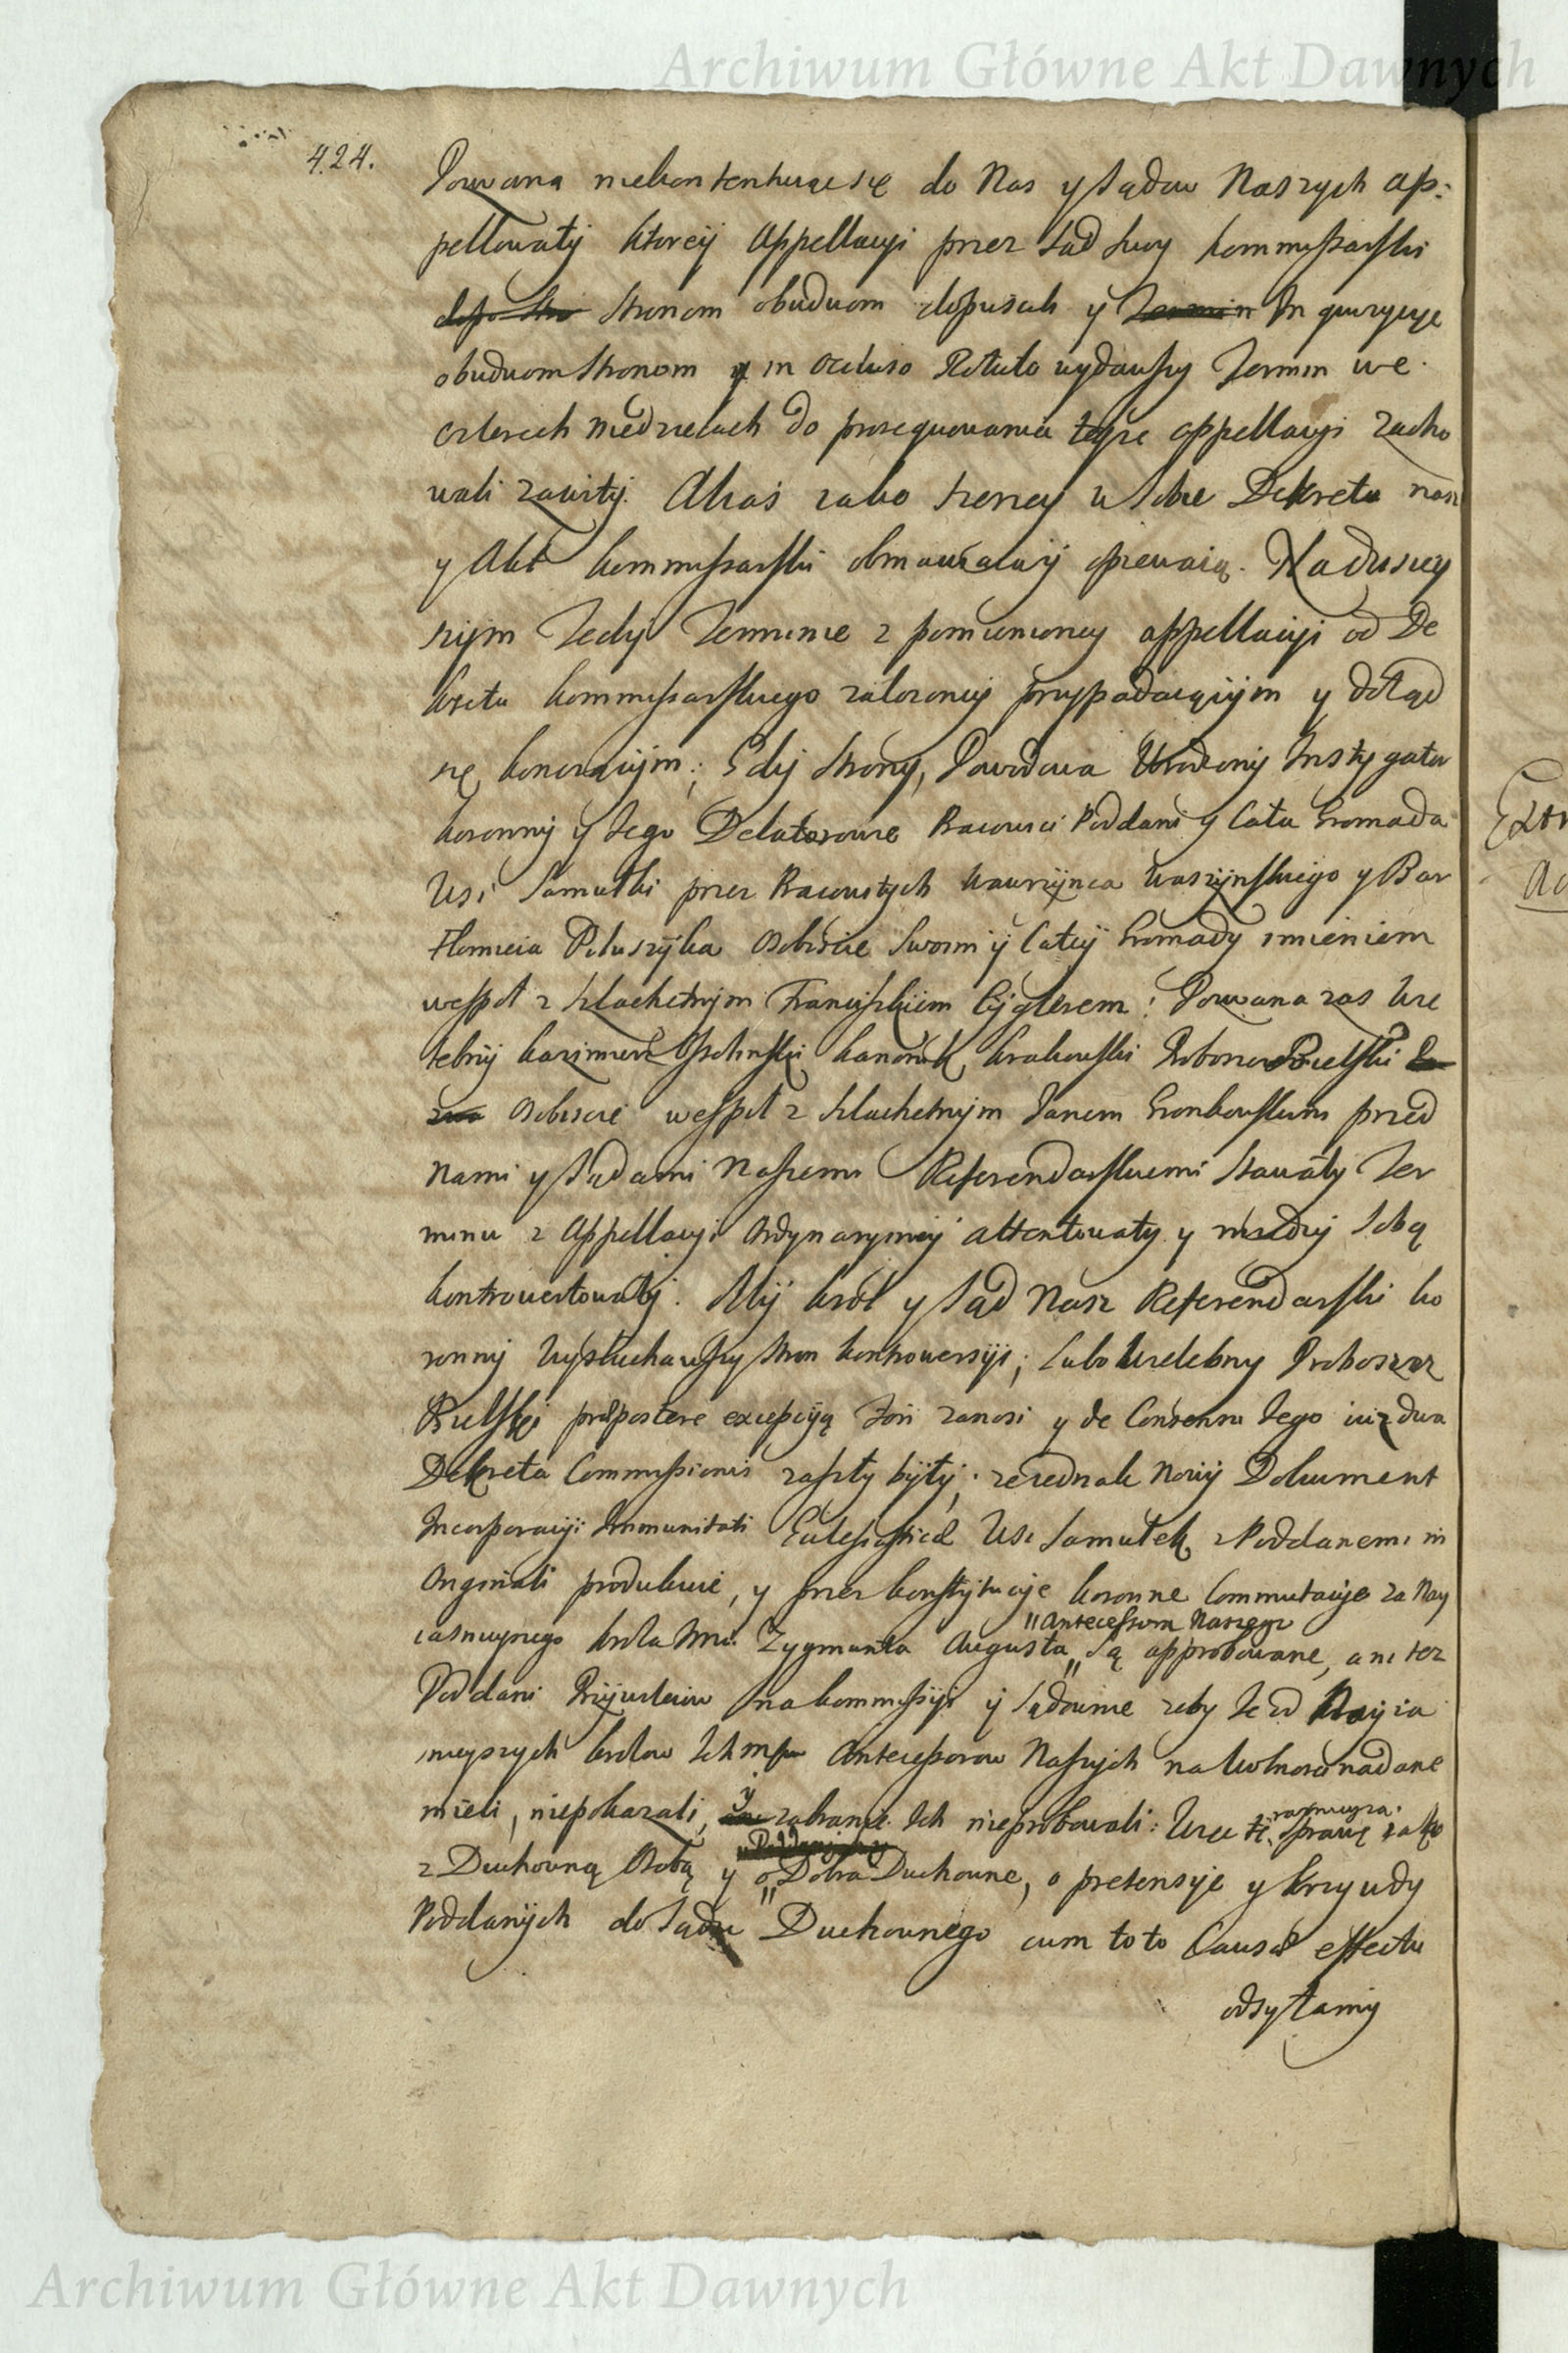 Archiwum Główne Akt Dawnych
424.
Pozwana niekontentuiąc się do Nas y Sądow Naszych ap:
pellowały ktorey Appellacyi przez Sąd swoy kommissarski
stronom obudwom dopuścili y Inquizycye
obudwom stronom in occluso Rotulo wydawszy Termin we
czterech niedzielach do prosequowania teyże appellacyi zacho
wali zawity. Akaś zabo szerzey w sobie Dekreta nasz
y Akt kommissarski obmawiaiący opiewaią. Na dzisiey
szym Tedy Terminie z pomienioney appellacyi od De
kretu kommissarskiego założoney przypadaiącym y dotąd
się konczącym; Gdy strony, Powodowa Urodzony Instygator
koronny y Jego Delatorowie Pracowici Poddani y Cała Gromada
Wsi Samułki przez Pracowitych Wawrzynca Waszynskiego y Bar
tłomieia Poluszyka Osobiście Swoim y Całey Gromady imieniem
wespoł z Szlachetnym Franciszkiem Cyglerem: Pozwana zas Wie
lebny kazimierz Ossolinski kanonik krakowski Proboszcz Bielski
Osobiscie wespoł z Szlachetnym Janem Gronkowskim przed
Nami y Sądami Naszemi Referendarskiemi stawały Ter
minu z Appellacyi Ordynaryiney attentowały y miedzy sobą
kontrowertowały. My krol y Sąd Nasz Referendarski ko
ronny Wysłuchawszy stron kontrowersyi; Lubo Wielebny Proboszcz
Bielski præpostere excepcyą Fori zanosi y de Consensu Jego iuż dwa
Dekreta Commissionis zaszły były; ze iednak Nowy Dokument
Incorporacyi Immunitati Ecclesiasticæ Wsi Samułek z Poddanemi in
Originali produkuie, y przez konstytucye koronne Commutacye za Nay
iasnieyszego krola Jmci Zygmunta Augusta
" Antecessora Naszego
są approbowane, ani też
Poddani Przywileiow na kommissyi y Sądownie żeby Je od Nayia
snieyszych krolow Ich mciow Antecessorow Naszych na Wolności nadane
mieli, niepokazali, y zabranie Ich nieprobowali: Więc tę
ninieysza.
sprawę iako
z Duchowną Osobą y o Dobra Duchowne, o pretensye y krzywdy
Poddanych do Sądu Duchownego cum toto Causæ effectu
odsyłamy
Archiwum Główne Akt Dawnych